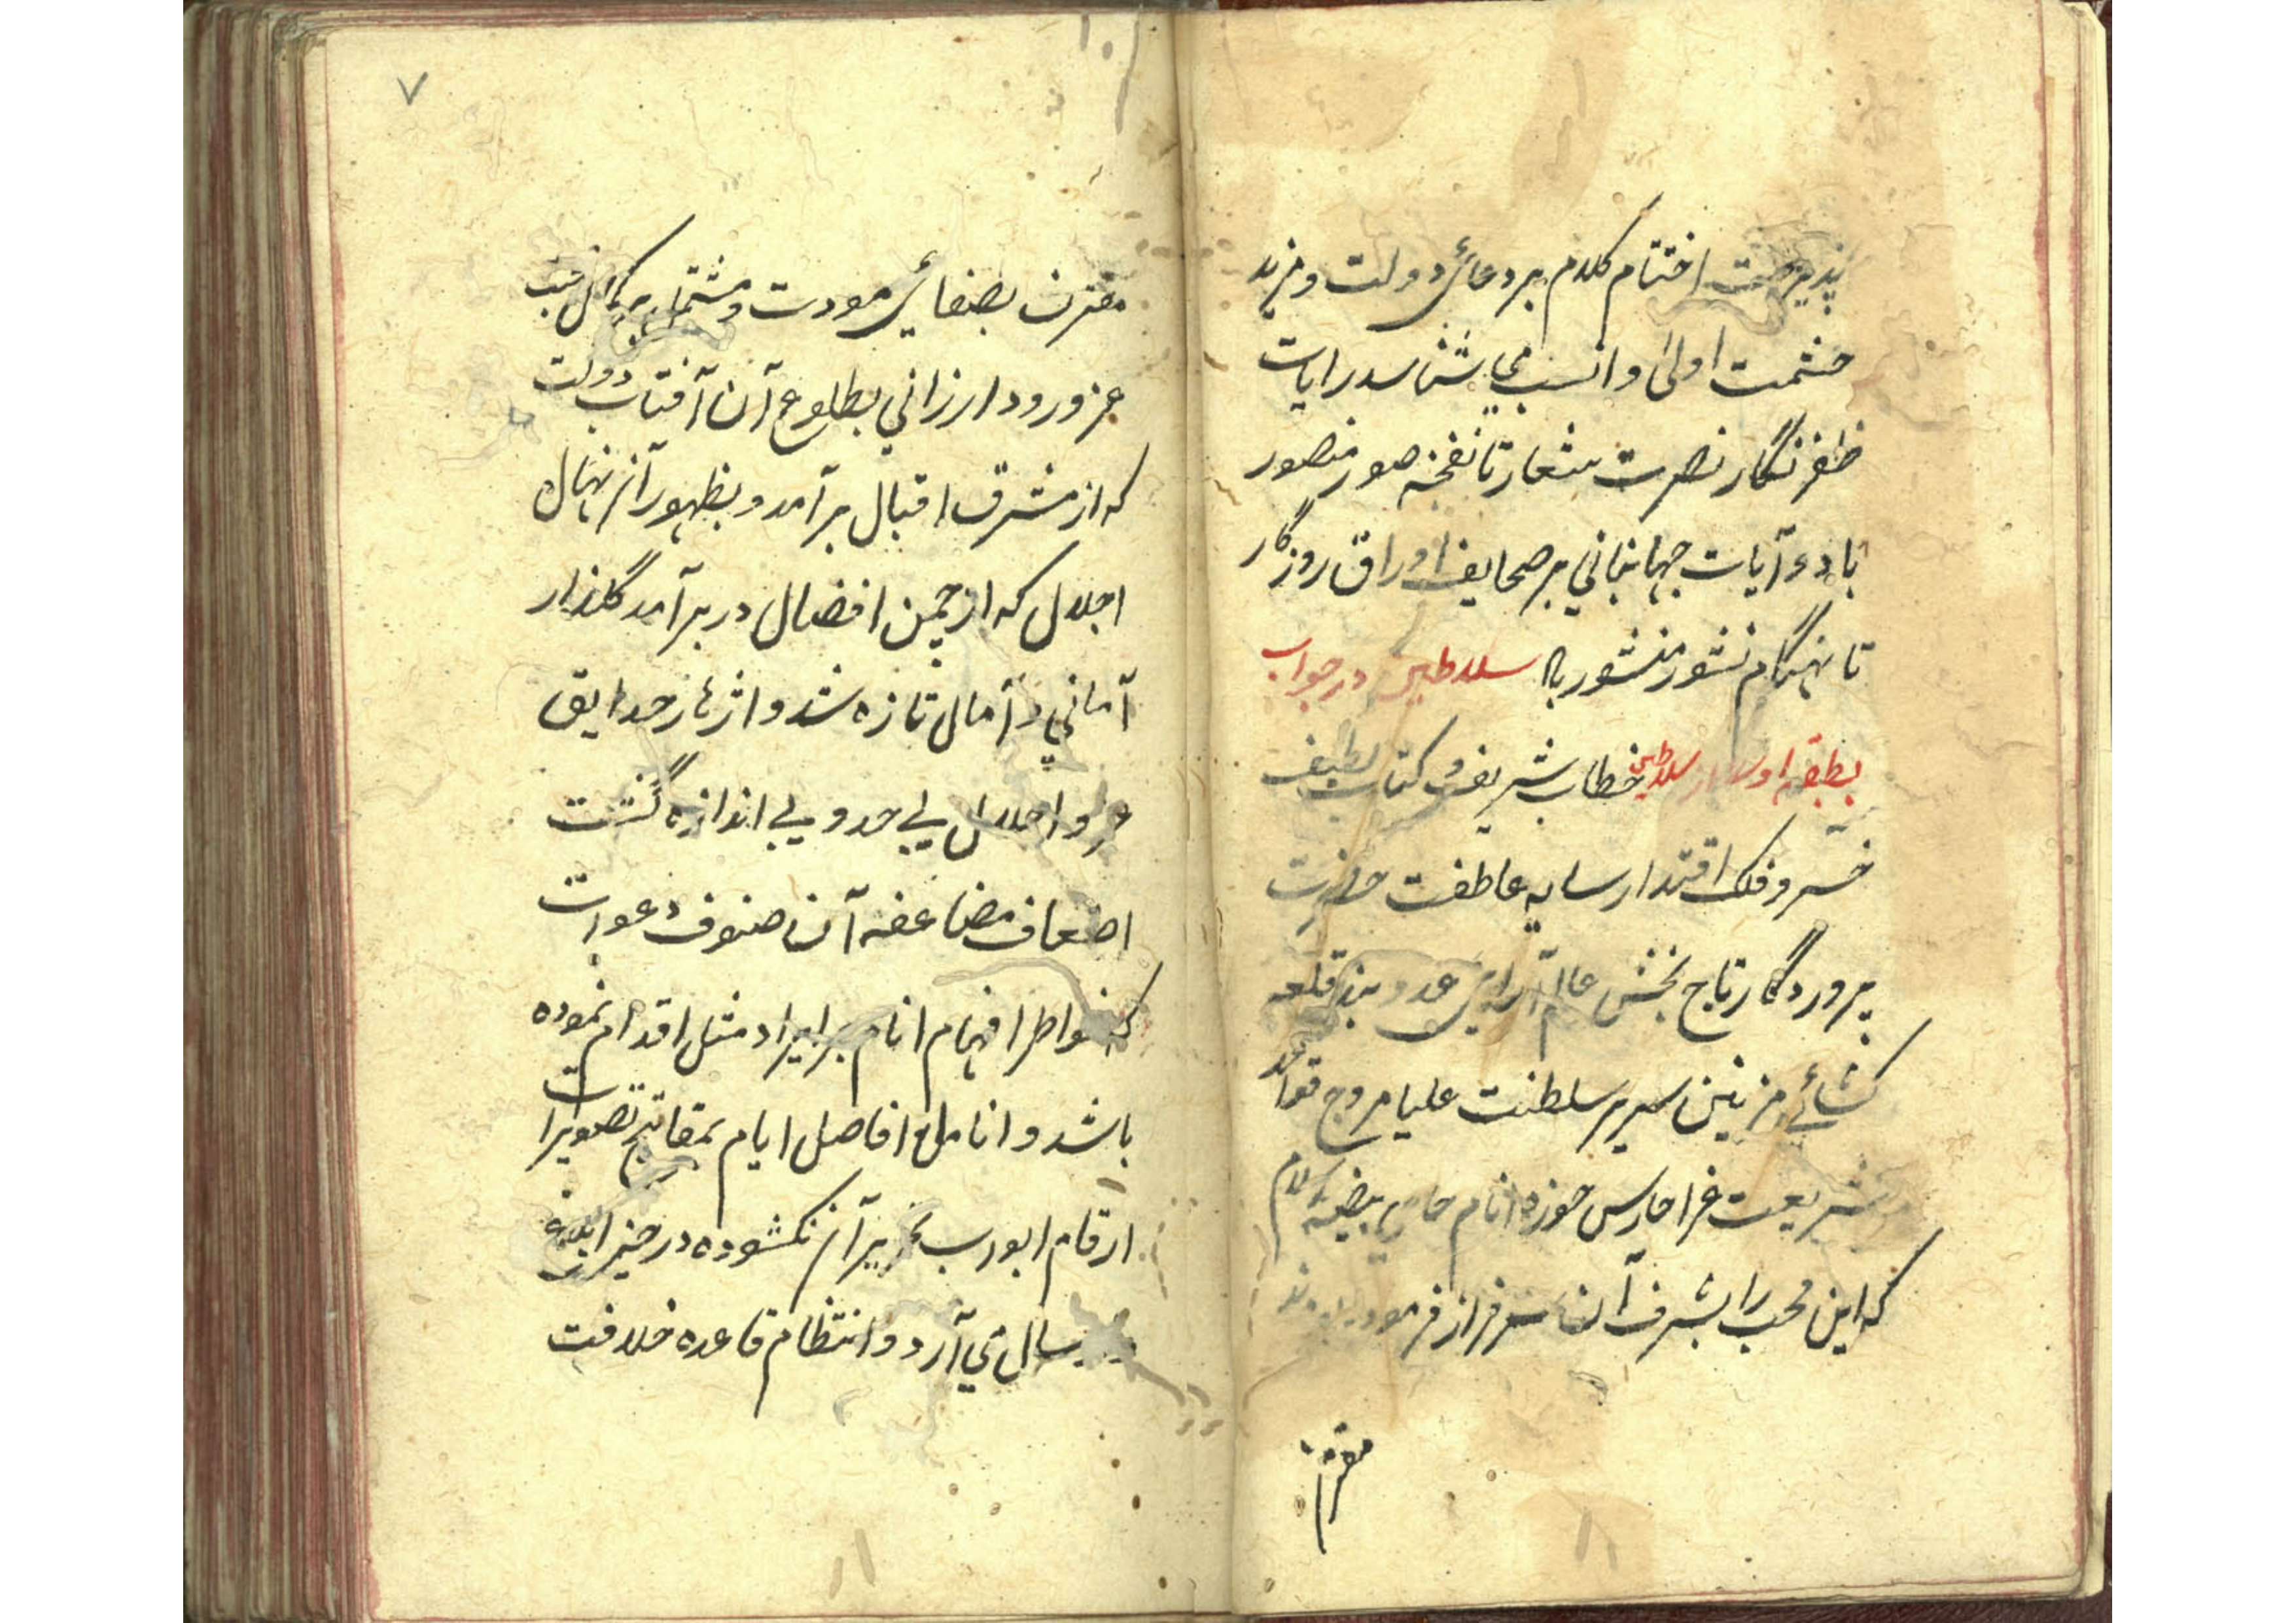 پذیرفت اختتام کلام بر دعائ دولت و مزید
حشمت اولی و انسب می شناسد رایات
ظفر نگار نصرت شعار تا نفخه صور منصور
باد و آیات جهانبانی بر صحایف اوراق روزگار
تا هنگام نشور منشور سلاطین در جواب
بطبقه سلاطین خطاب شریف و کتاب لطیف
خسرو فلک اقتدار سایه عاطفت حضرت
پروردگار تاج بخش عالم آرای عدو بند قلعه
کشائے مزین سریر سلطنت علیا مروج قواعد
شریعت غرا حارس حوزه انام حامی بیضه اسلام
که این محب را بشرف آن سرفراز فرموده بودند
مقرن
۷
مقرن بصفائ مودت و مشتمل بر کمال محبت
عز ورود ارزاني بطلوع آن آفتاب دولت
که از مشرق اقبال بر آمد و بظهور آن نهال
اجلال که از چمن افضال در بر آمد گلذار
آماني و آمال تازه شد و ازهار حدایق
و اجلال بی حد و بی اندازه گشت
اضعاف مضاعفه آن صنوف دعوات
که خواطر افهام انام بر ایراد مثل اقدام نموده
باشد و انامل افاضل ایام بمفاتیح تصویرات
ارقام ابواب تحریر آن نکشوده در حیز ابلاغ
ارسال می آرد و انتظام قاعده خلافت